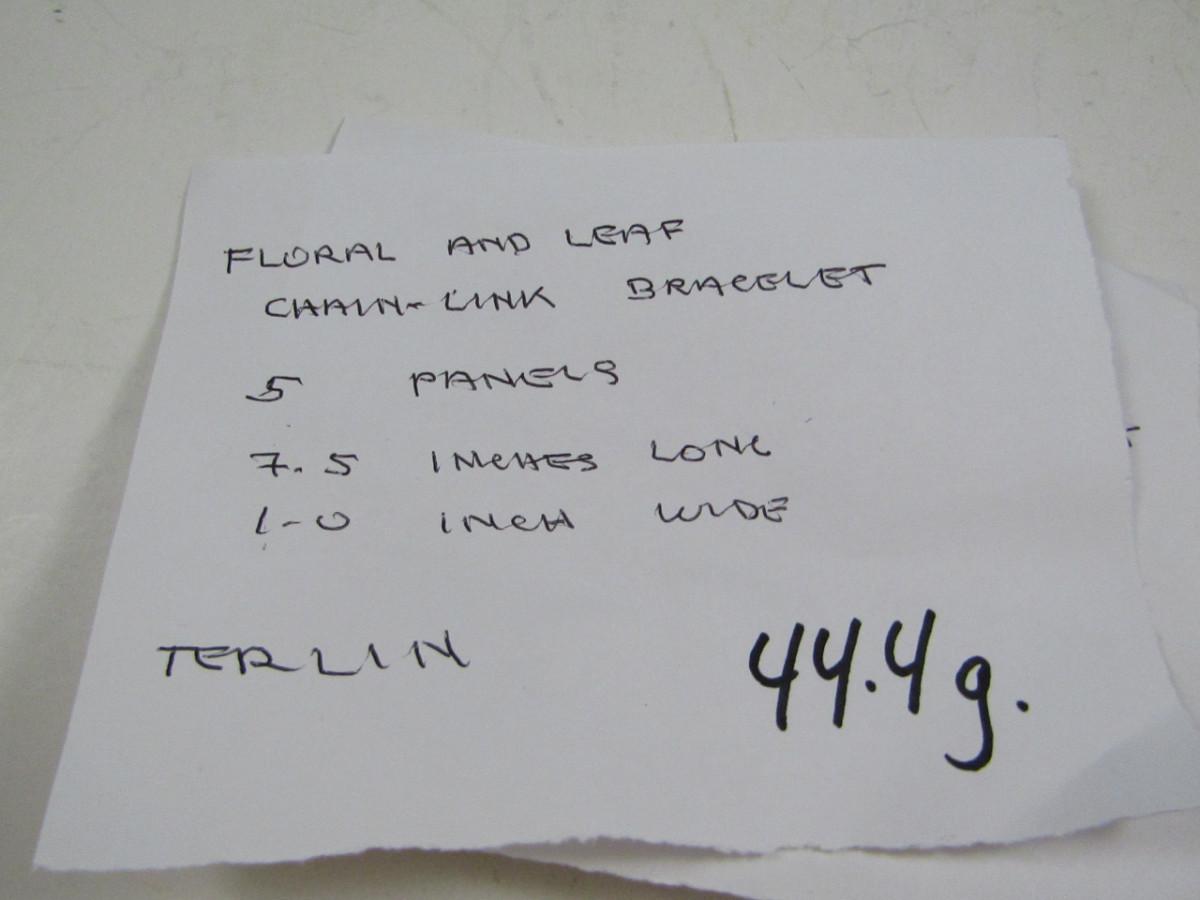 FLORAL AND LEAF
CHAIN-LINK BRACELET
5 PANELS
7.5 INCHES LONG
1-0 INCH WIDE
TERLIN 44.4g.